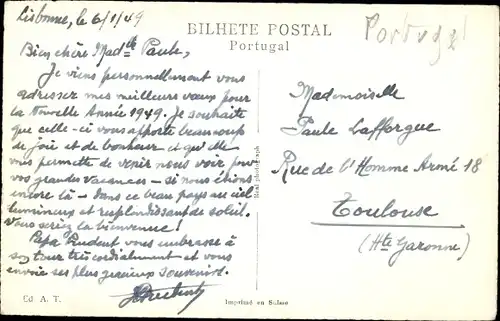 Lisbonne, le 6/1/49
BILHETE POSTAL
Portugal
Portugal
Bien chère Mad^lle Paule,
Je viens personnellement vous
adresser mes meilleurs vœux pour
la Nouvelle Année 1949. Je souhaite
que celle-ci vous apporte beaucoup
de joie et de bonheur et qu'elle
vous permette de venir nous voir pour
vos grandes vacances - si nous étions
encore là - dans ce beau pays au ciel
lumineux et resplendissant de soleil.
Vous seriez la bienvenue!
Papa Prudent vous embrasse à
son tour très cordialement et vous
envoie ses plus gracieux souvenirs.
Prudent
Real photograph
Mademoiselle
Paule Lafforgue
Rue de l'Homme Armé 18
Toulouse
(Hte Garonne)
Cd A. T.
Imprimé en Suisse